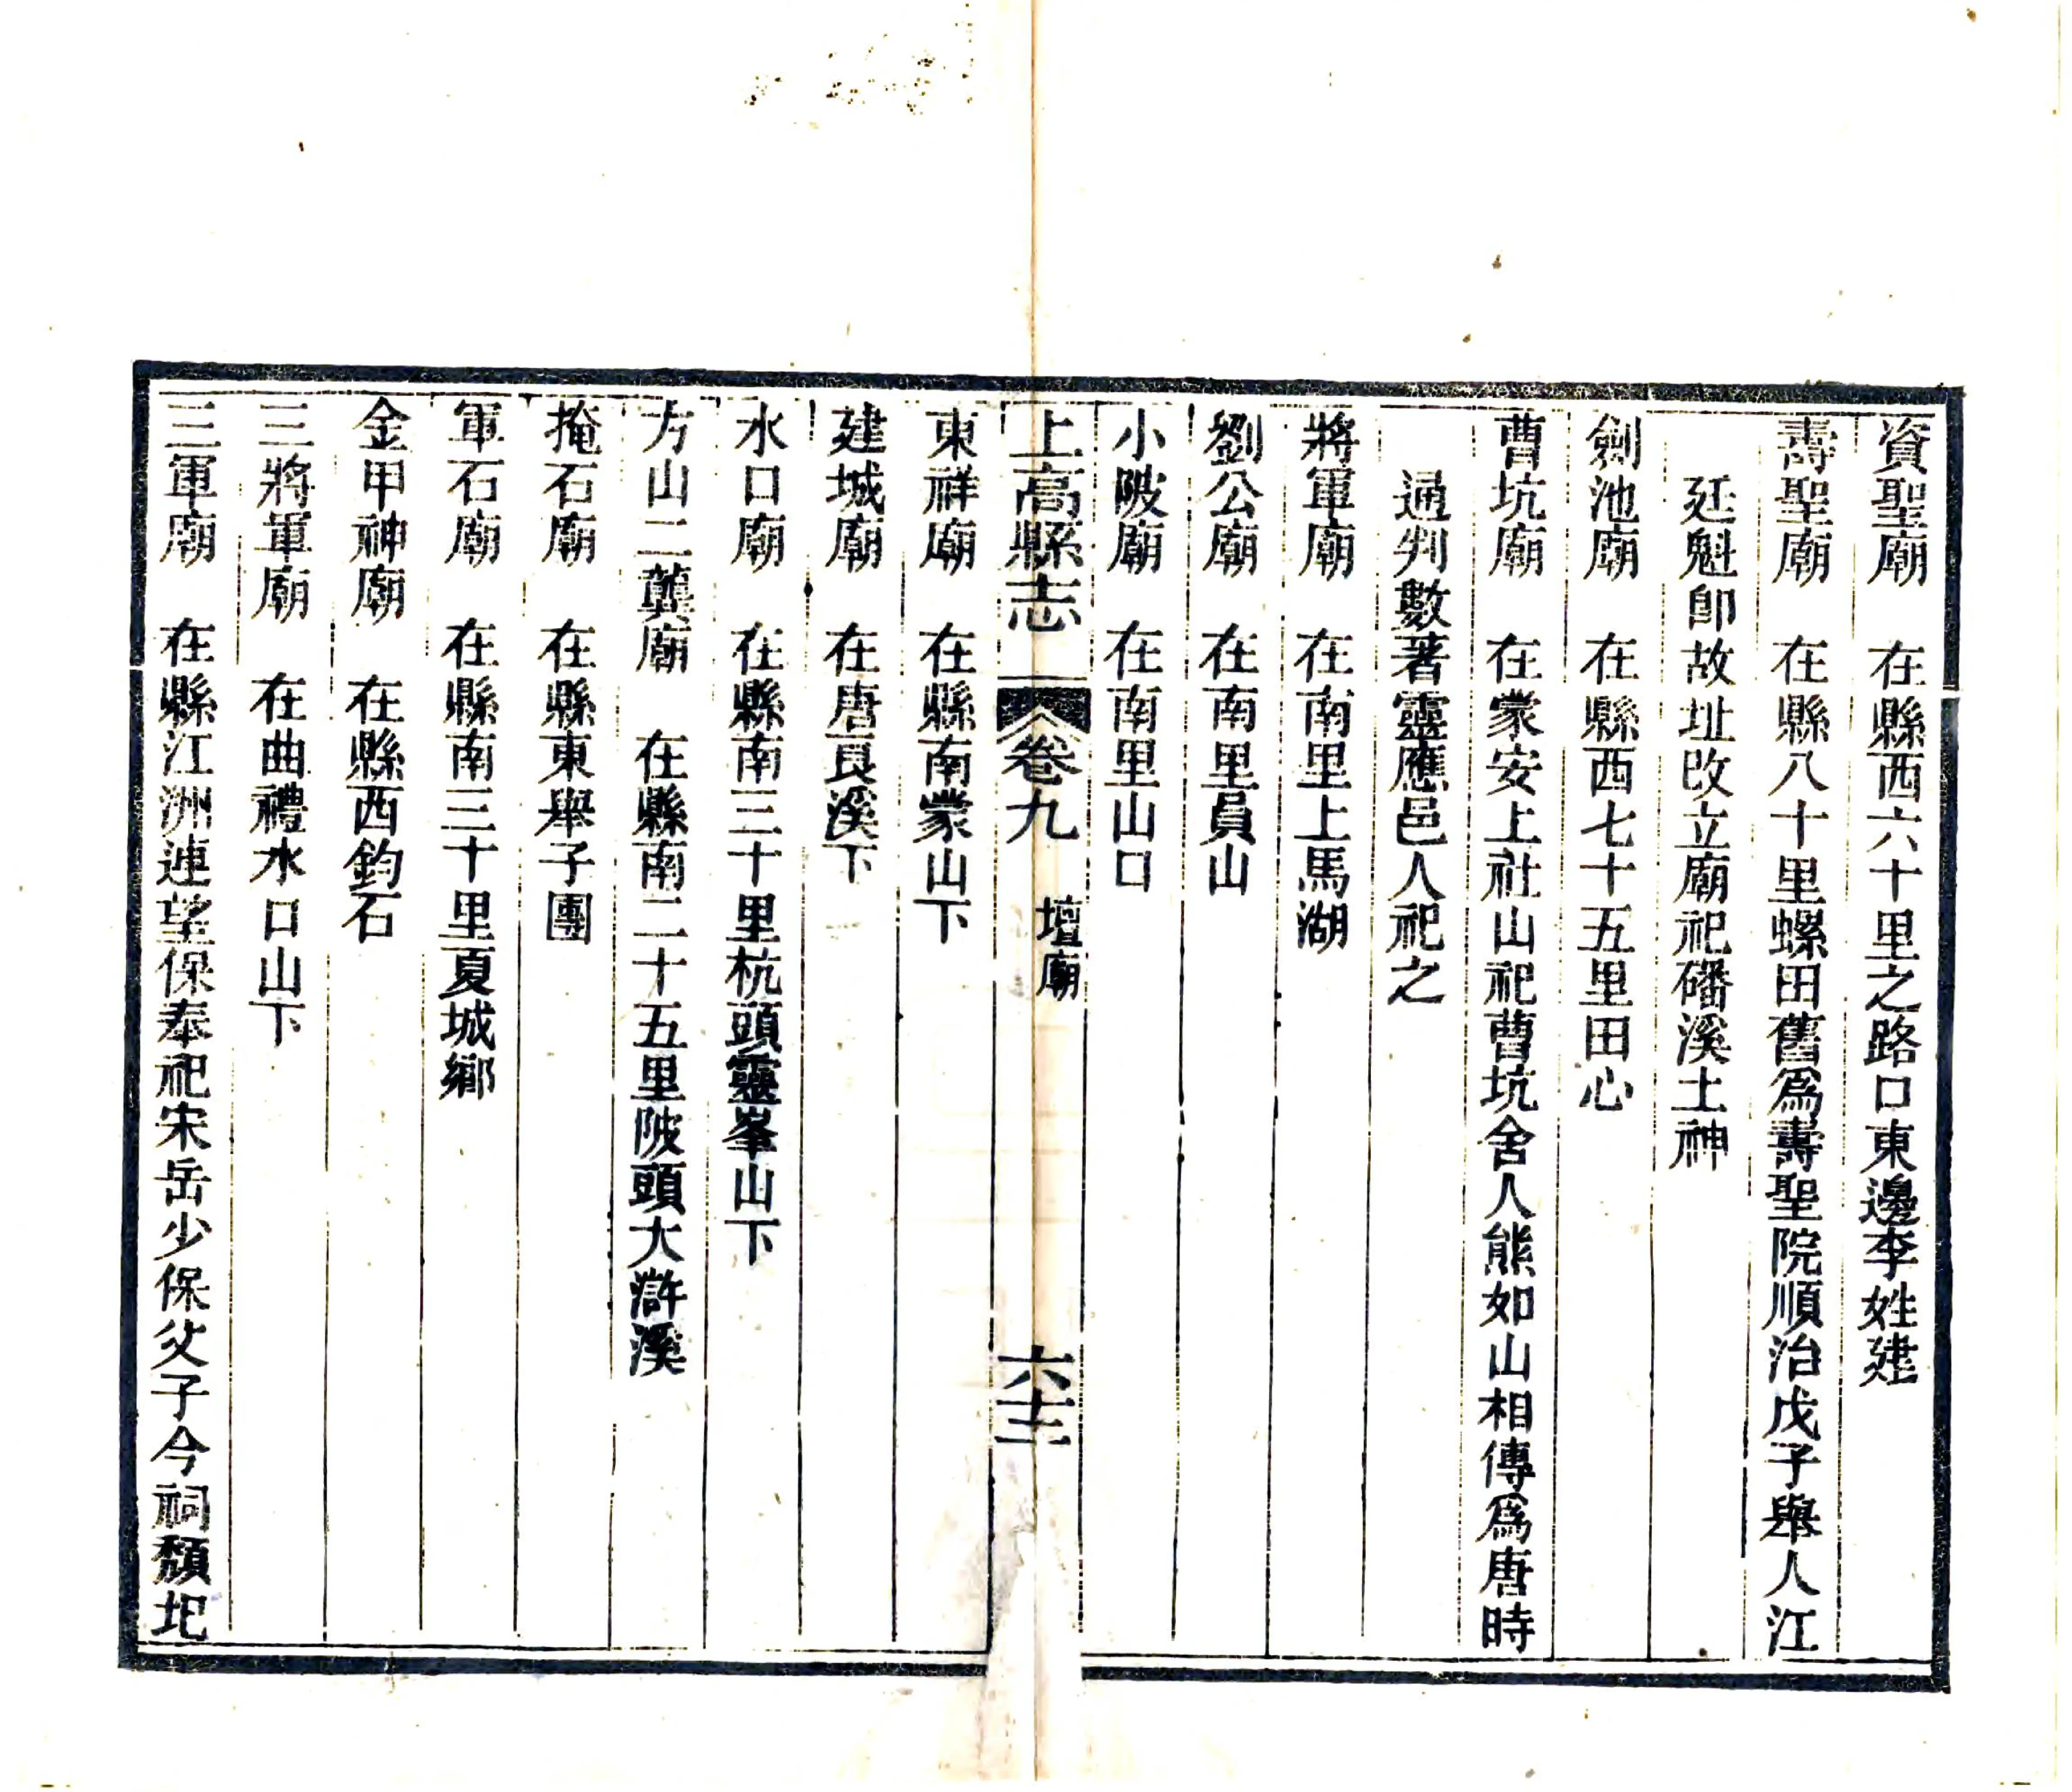 資聖廟　在縣西六十里之路口東邊李姓建
壽聖廟　在縣八十里螺田舊爲壽聖院順治戊子舉人江
廷魁卽故址改立廟祀磻溪土神
劍池廟　在縣西七十五里田心
曹坑廟　在蒙安上社山祀曹坑舍人熊如山相傳爲唐時
通判數著靈應邑人祀之
將軍廟　在南里上馬湖
劉公廟　在南里員山
小陂廟　在南里山口
上高縣志　卷九　壇廟　六十二
東祥廟　在縣南蒙山下
建城廟　在唐良溪下
水口廟　在縣南三十里杭頭靈峯山下
方山二龔廟　在縣南二十五里陂頭大滸溪
掩石廟　在縣東舉子團
軍石廟　在縣南三十里夏城鄉
金甲神廟　在縣西鈞石
三將軍廟　在曲禮水口山下
三軍廟　在縣江洲連望保奉祀宋岳少保父子今祠頹圮